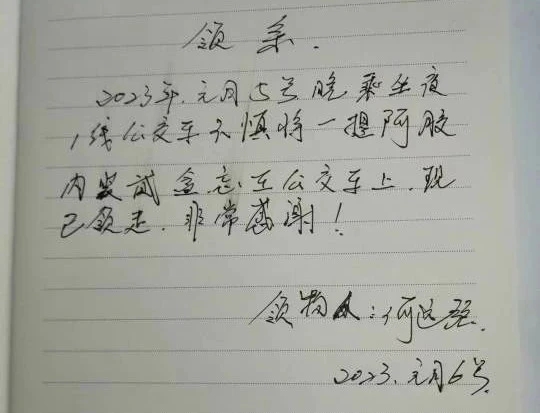 领条.
2023年.元月5号晚乘坐夜
1线公交车不慎将一提阿胶
内装贰盒忘在公交车上.现
已领走.非常感谢!
领物人:何
2023.元月6号